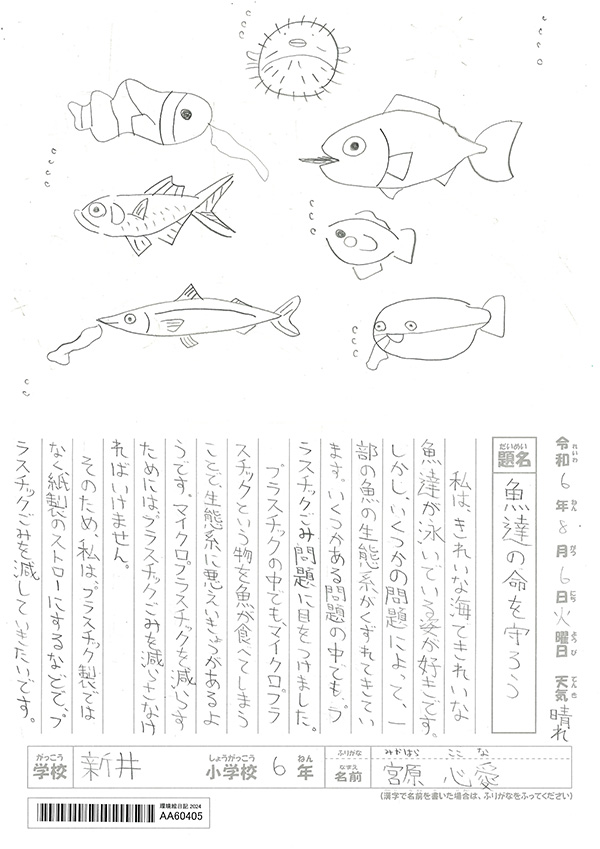 令和6年8月6日火曜日 天気 晴れ
れいわ ねん がつ にち ようび てんき
だいめい
題名 魚達の命を守ろう
私は、きれいな海できれいな
魚達が泳いでいる姿が好きです。
しかし、いくつかの問題によって、一
部の魚の生態系がくずれてきてい
ます。いくつかある問題の中でも、プ
ラスチックごみ問題に目をつけました。
プラスチックの中でも、マイクロプラ
スチックという物を魚が食べてしまう
ことで、生態系に悪えいきょうがあるよ
うです。マイクロプラスチックを減らす
ためには、プラスチックごみを減らさなけ
ればいけません。
そのため、私はプラスチック製では
なく紙製のストローにするなどで、プ
ラスチックごみを減していきたいです。
がっこう しょうがっこう ねん
学校 新井 小学校 6年
ふりがな みやはら ここな
なまえ
名前 宮原 心愛
(漢字で名前を書いた場合は、ふりがなをふってください)
環境絵日記 2024
AA60405